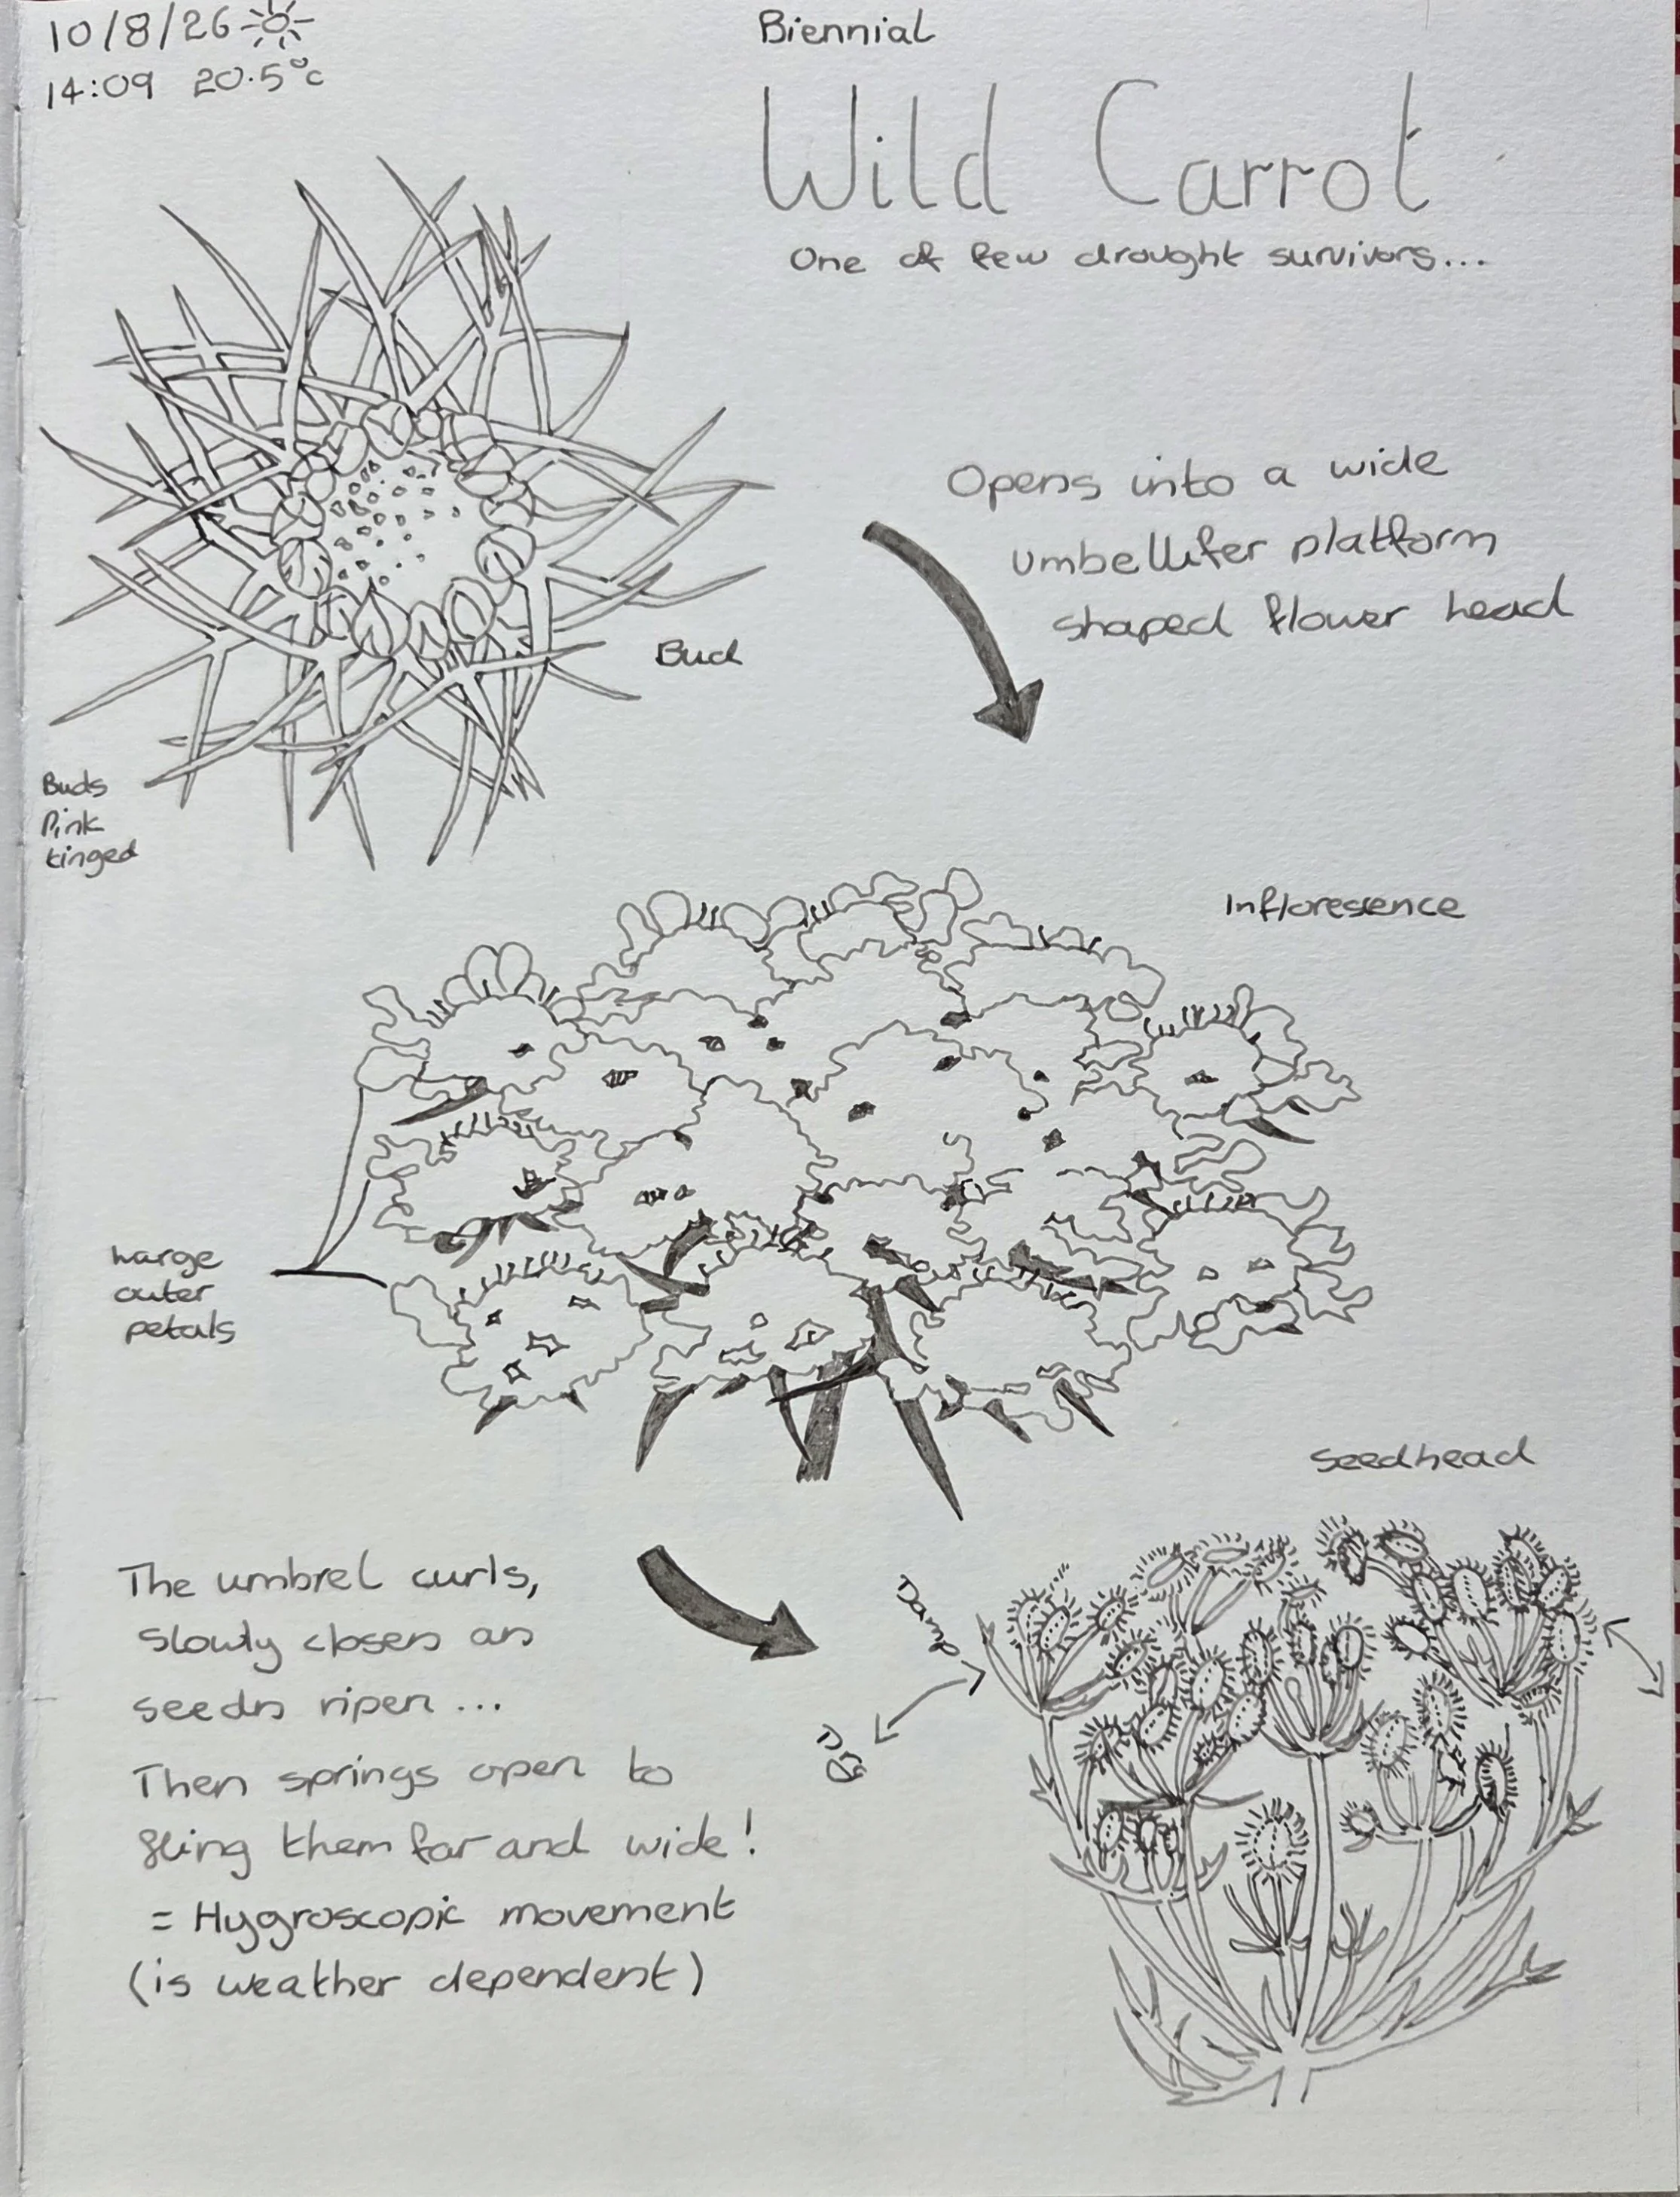 10/8/26
14:09 20.5°c
Biennial
Wild Carrot
One of few drought survivors...
Opens into a wide
umbellifer platform
shaped flower head
Bud
Buds
Pink
tinged
Infloresence
Large
outer
petals
Seedhead
The umbrel curls,
slowly closes as
seeds ripen ...
Then springs open to
fling them far and wide!
= Hygroscopic movement
(is weather dependent)
Damp
Dry